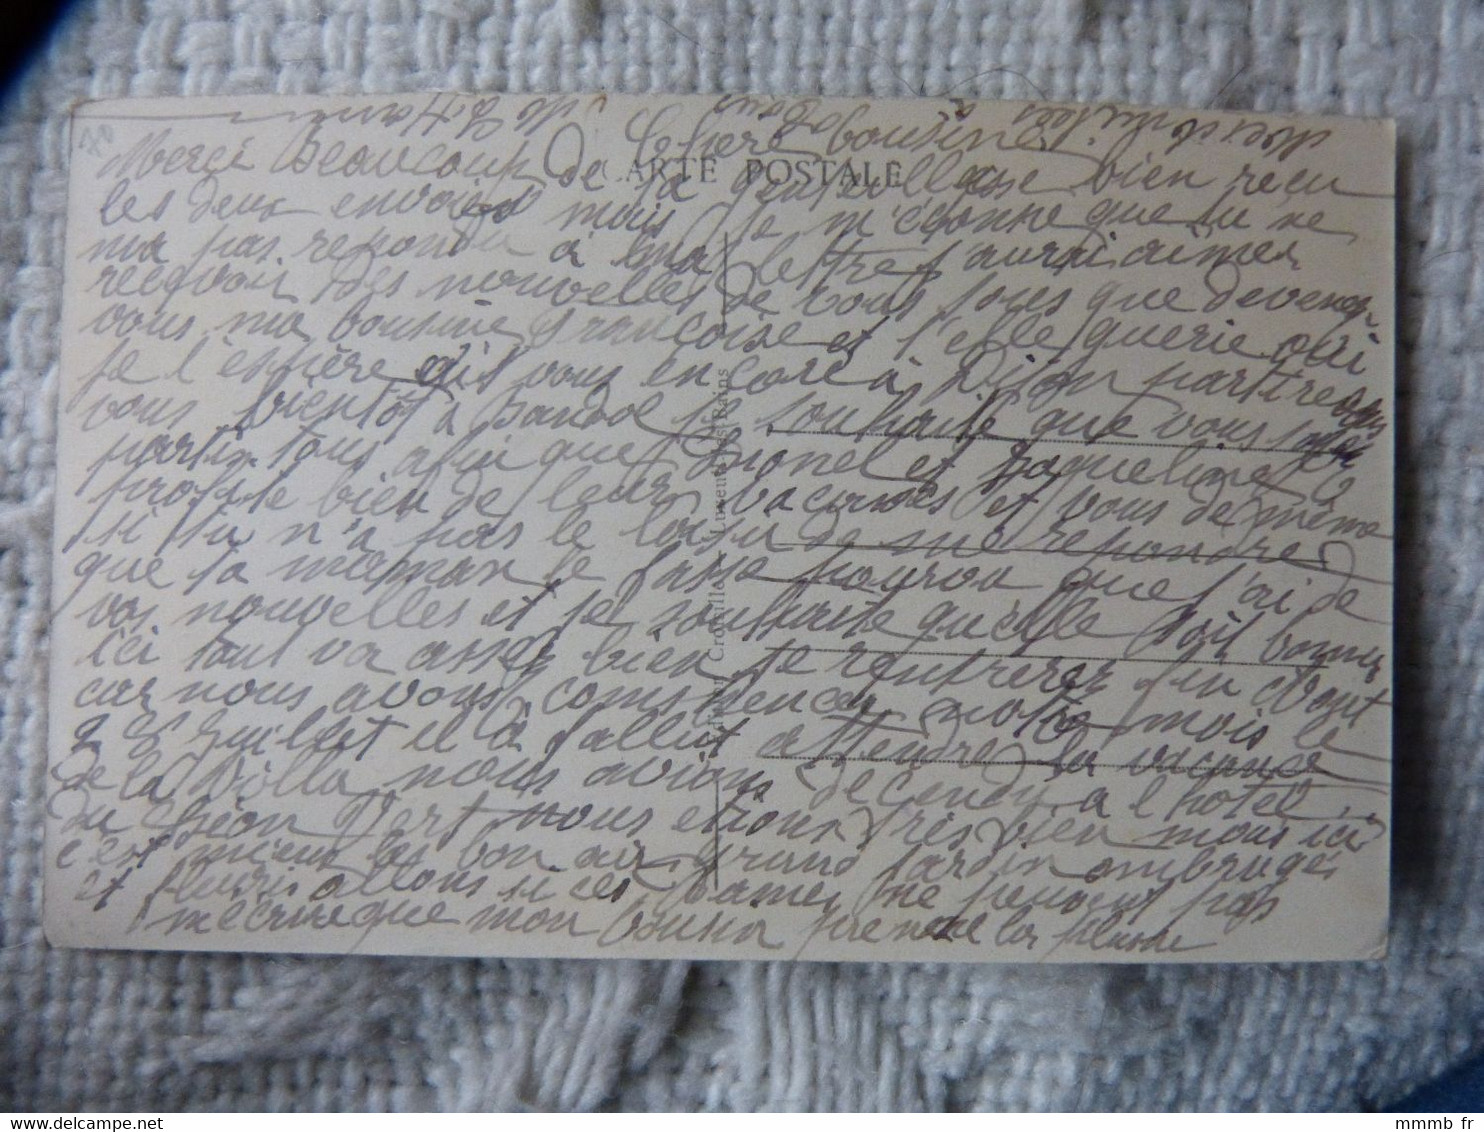 Chère Cousine
CARTE POSTALE
Merci Beaucoup de ta gentillesse bien reçu
les deux envoies mais je m'étonne que tu ne
ma pas repondu à ma lettre j'aurai aimer
recevoir des nouvelles de vous tous que devenez
vous ma cousine Françoise et t'elle guerie oui
je l'espière êtes vous encore à Dijon partirez
vous bientôt à Bandol je souhaite que vous soyez
parti tous afin que Lionel et Jaqueline
profite bien de leur vacances et vous de même
si tu n'a pas le loisir de me repondre
que ta maman le fasse pourvu que j'ai de
vos nouvelles et je souhaite quelle soit bonnes
ici tout va assez bien je rentrerez fin Août
car nous avons commencer notre mois le
28 Juillet il à fallut attendre la vacance
de la Villa nous avions decendu a l'hotel
du Chêne Vert nous etions très bien mais ici
c'est mieux les bon air grand jardin ombrages
et fleuris allons si ces Dames ne peuvent pas
m'ecrire que mon Cousin prenne la plume
mmmb fr